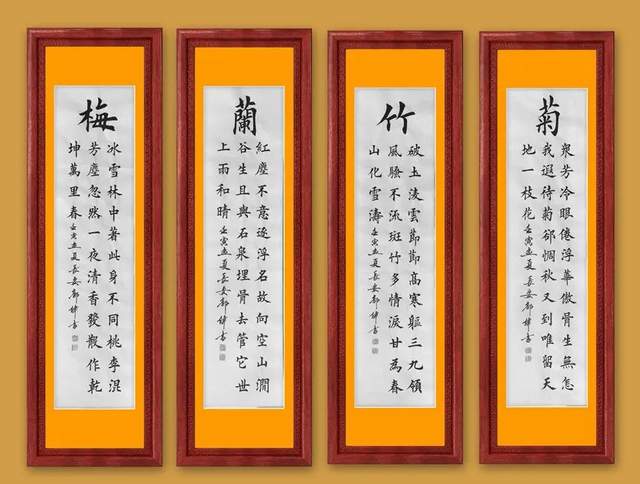 梅
冰雪林中著此身不同桃李混
芳塵忽然一夜清香發散作乾
坤萬里春 壬寅立夏長安 書
蘭
紅塵不意逐浮名故向空山澗
谷生且與石泉埋骨去管它世
上雨和晴 壬寅立夏長安 書
竹
破土凌雲節節高寒軀三九領
風騷不流斑竹多情淚甘為春
山化雪濤 壬寅立夏長安 書
菊
衆芳冷眼倦浮華傲骨生無怎
我遐待菊郤惆秋又到唯留天
地一枝花 壬寅立夏長安 書